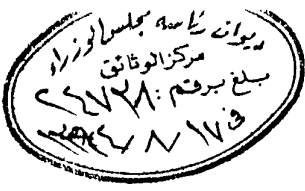 ديوان رئاسة مجلس الوزراء
مركز الوثائق
بلغ برقم: ٢٤٧٣٨
في ١٧ / ٨ /